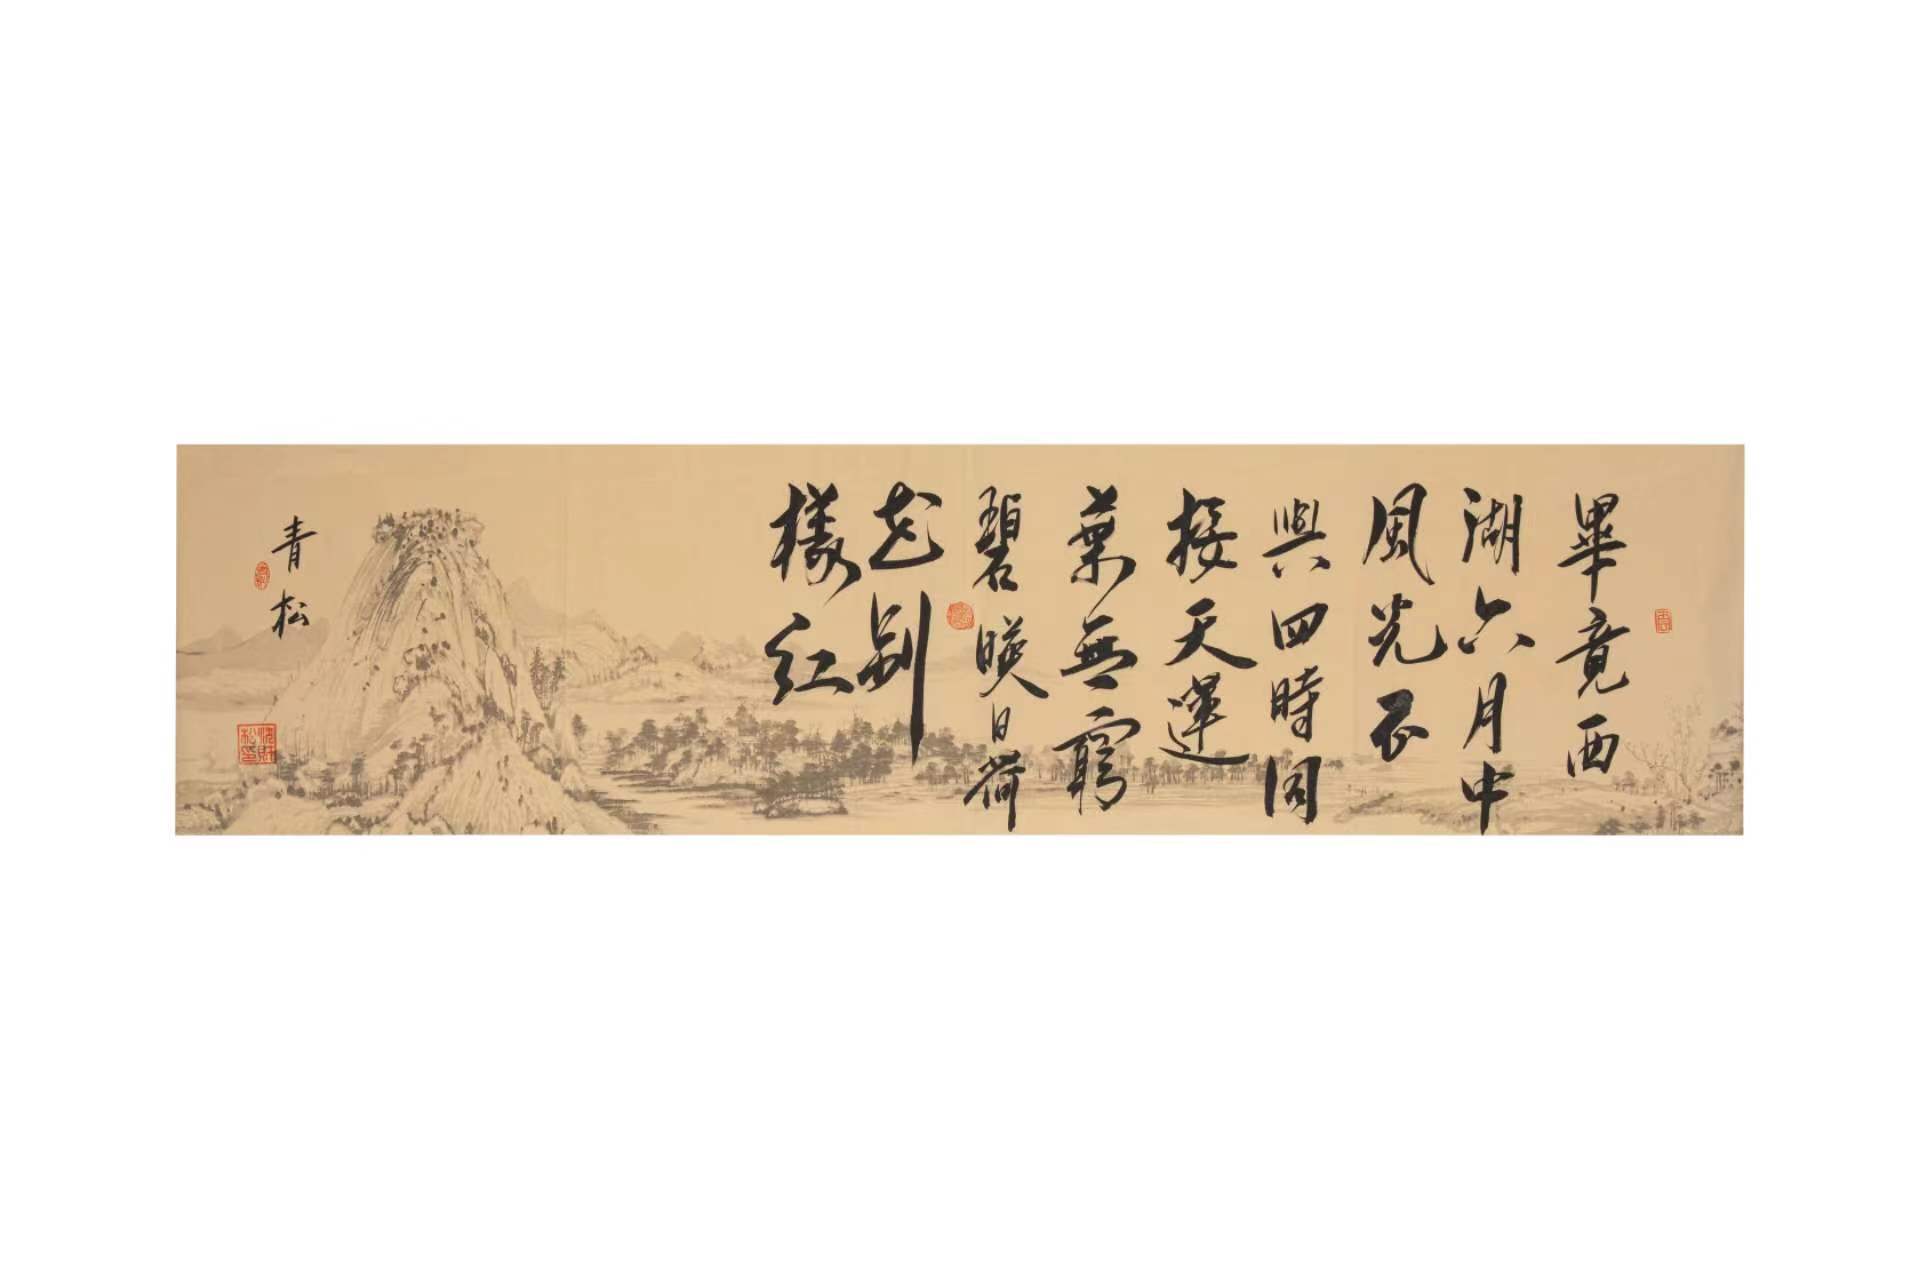 畢竟西
湖六月中
風光不
與四時同
接天蓮
葉無窮
碧暎日荷
花別
樣紅
青松